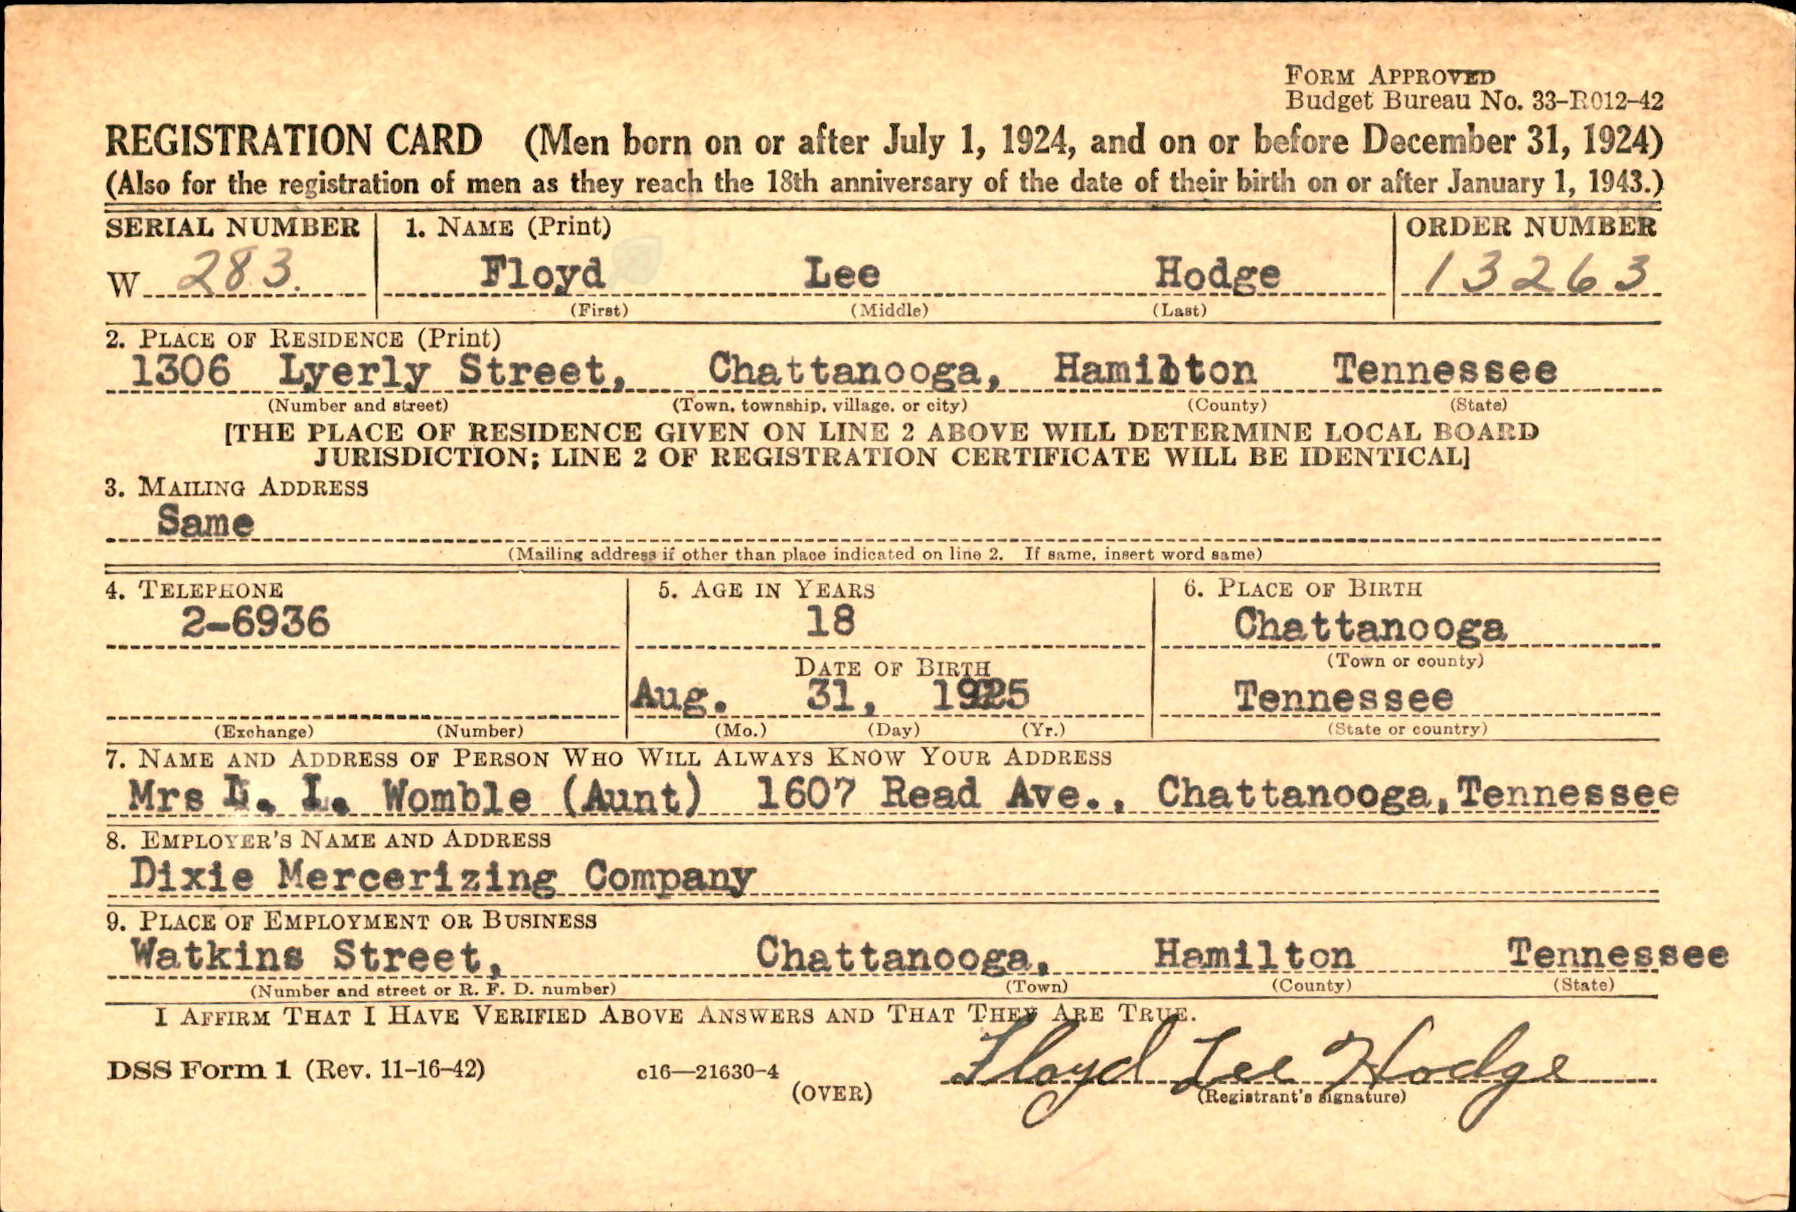 FORM APPROVED
Budget Bureau No. 33-R012-42
REGISTRATION CARD (Men born on or after July 1, 1924, and on or before December 31, 1924)
(Also for the registration of men as they reach the 18th anniversary of the date of their birth on or after January 1, 1943.)
SERIAL NUMBER 1. NAME (Print) ORDER NUMBER
W 283. Floyd Lee Hodge 13263
(First) (Middle) (Last)
2. PLACE OF RESIDENCE (Print)
1306 Lyerly Street, Chattanooga, Hamilton Tennessee
(Number and street) (Town, township, village, or city) (County) (State)
[THE PLACE OF RESIDENCE GIVEN ON LINE 2 ABOVE WILL DETERMINE LOCAL BOARD
JURISDICTION; LINE 2 OF REGISTRATION CERTIFICATE WILL BE IDENTICAL]
3. MAILING ADDRESS
Same
(Mailing address if other than place indicated on line 2. If same, insert word same)
4. TELEPHONE 5. AGE IN YEARS 6. PLACE OF BIRTH
2-6936 18 Chattanooga
(Town or county)
DATE OF BIRTH
Aug. 31, 1925 Tennessee
(Exchange) (Number) (Mo.) (Day) (Yr.) (State or country)
7. NAME AND ADDRESS OF PERSON WHO WILL ALWAYS KNOW YOUR ADDRESS
Mrs L. Womble (Aunt) 1607 Read Ave., Chattanooga, Tennessee
8. EMPLOYER'S NAME AND ADDRESS
Dixie Mercerizing Company
9. PLACE OF EMPLOYMENT OR BUSINESS
Watkins Street, Chattanooga, Hamilton Tennessee
(Number and street or R. F. D. number) (Town) (County) (State)
I AFFIRM THAT I HAVE VERIFIED ABOVE ANSWERS AND THAT THEY ARE TRUE.
DSS Form 1 (Rev. 11-16-42) c16—21630-4 Floyd Lee Hodge
(OVER) (Registrant's signature)